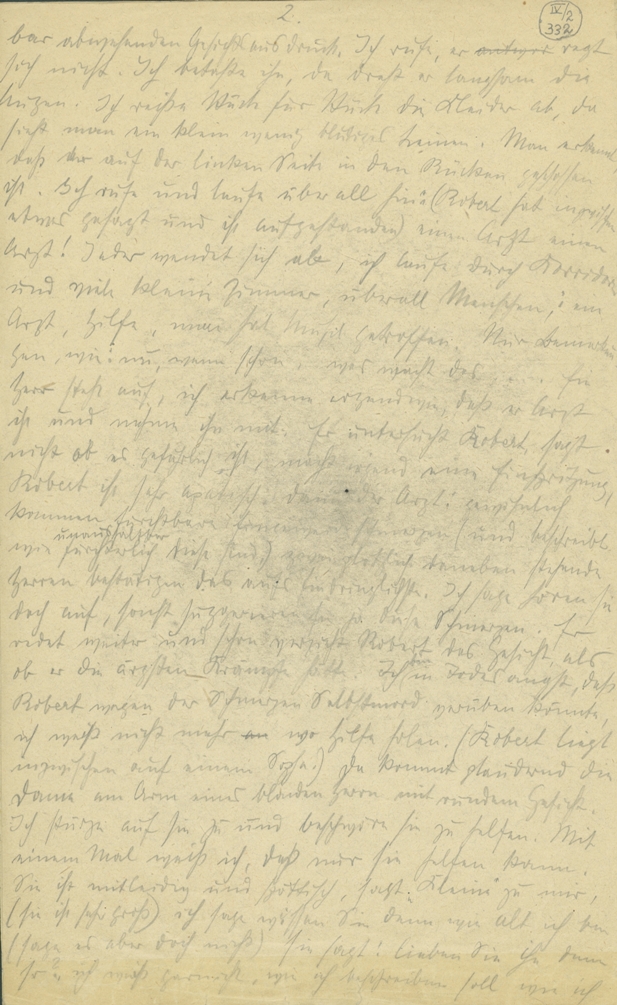 2.
IV/2
332
bar abwehenden Gesichtsausdruck. Ich rufe, er regt
sich nicht. Ich betaste ihn, da dreht er langsam die
Augen. Ich reiße Stück für Stück die Kleider ab, da
sieht man ein klein wenig blutiges. Man erkennt
daß er auf der linken Seite in den Rücken geschossen
ist. Ich rufe und laufe überall hin (Robert hat inzwischen
etwas gesagt und ist aufgestanden) einen Arzt einen
Arzt! Jeder wendet sich ab, ich laufe durch Korridore
und viele kleine Zimmer, überall Menschen, : ein
Arzt, Hilfe, man hat Musil getroffen. Nur Bemerkun
gen, wie: nu, wenn schon, was macht das, ... Ein
Herr steht auf, ich erkenne irgendwie, daß er Arzt
ist und nehme ihn mit. Er untersucht Robert, sagt
nicht ob es gefährlich ist, macht irgend eine Einspritzung,
Robert ist sehr apathisch. dann der Arzt: gewöhnlich
kommen furchtbare Schmerzen (und beschreibt
unaushaltbar
wie fürchterlich diese sind) daneben stehende
Herren bestätigen das aufs eindringlichste. Ich sage hören Sie
doch auf, sonst suggerieren Sie ja diese Schmerzen. Er
redet weiter und schon verzieht Robert das Gesicht, als
ob er die ärgsten Krämpfe hätte. Ich in Todesangst, daß
Robert wegen der Schmerzen Selbstmord verüben könnte,
ich weiß nicht mehr wo Hilfe holen. (Robert liegt
inzwischen auf einem Sofa.) Da kommt plaudernd die
Dame am Arm eines blonden Herrn mit rundem Gesicht.
Ich stürze auf sie zu und beschwöre sie zu helfen. Mit
einem Mal weiß ich, daß nur sie helfen kann.
Sie ist mitleidig und spöttisch, sagt: Kleine zu mir,
(sie ist sehr groß) ich sage wissen Sie denn wie alt ich bin
(sage es aber doch nicht) Sie sagt: lieben Sie ihn denn
so? ich weiß garnicht, wie ich beschreiben soll wie ich